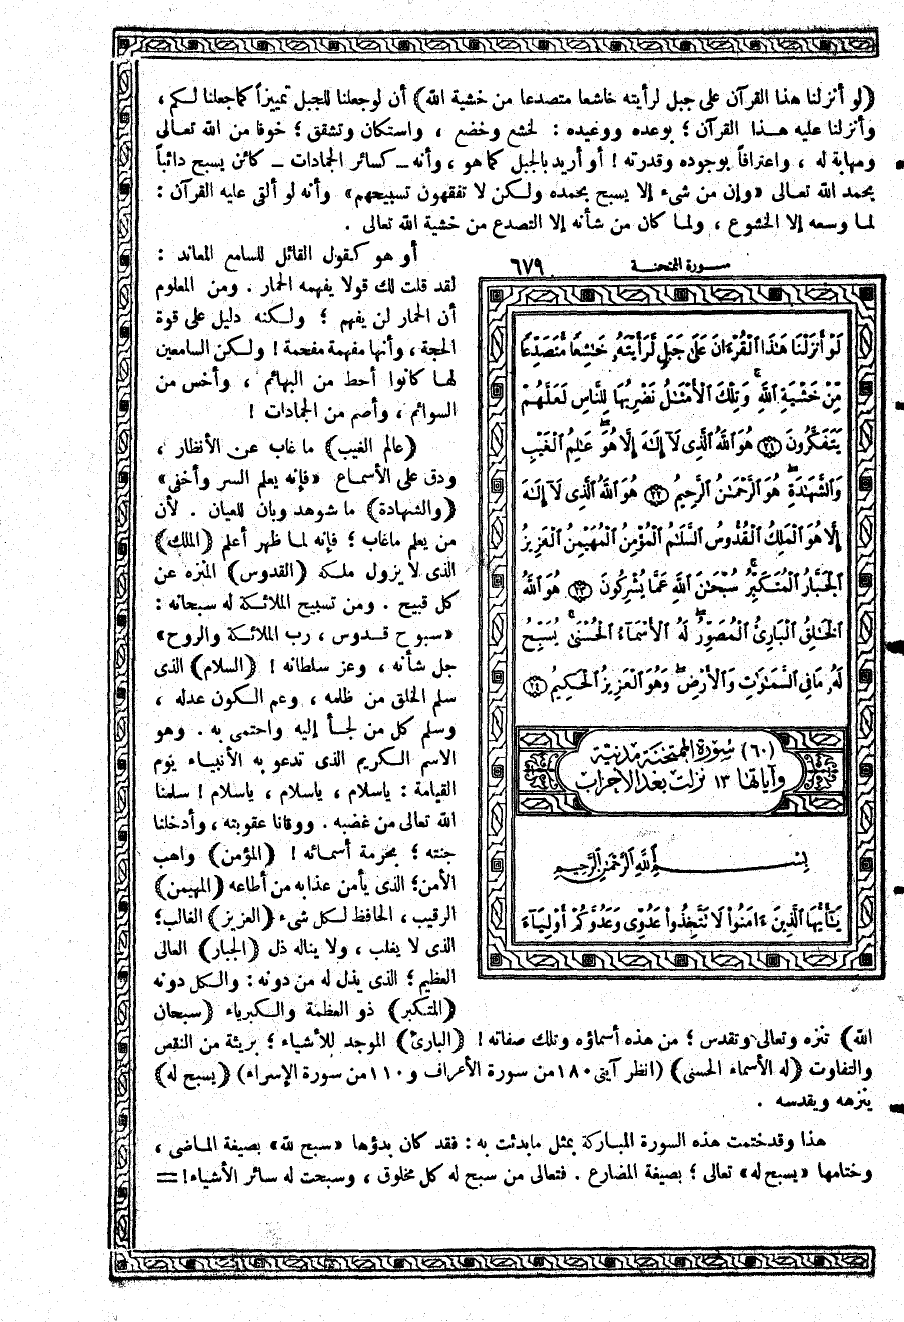 (لو أنزلنا هذا القرآن على جبل لرأيته خاشعا متصدعا من خشية الله) أن لوجعلنا للجبل تمييزاً كماجعلنا لكم،
وأنزلنا عليه هذا القرآن؛ بوعده ووعيده: لخشع وخضع، واستكان وتشقق؛ خوفا من الله تعالى
ومهابة له، واعترافاً بوجوده وقدرته! أو أريد بالجبل كما هو، وأنه ــ كسائر الجمادات ــ كائن يسبح دائباً
بحمد الله تعالى «وإن من شىء إلا يسبح بحمده ولكن لا تفقهون تسبيحهم» وأنه لو ألقى عليه القرآن:
لما وسعه إلا الخشوع، ولما كان من شأنه إلا التصدع من خشية الله تعالى.
أو هو كقول القائل للسامع المعاند:
لقد قلت لك قولا يفهمه الحمار. ومن المعلوم
أن الحمار لن يفهم؛ ولكنه دليل على قوة
الحجة، وأنها مفهمة مفحمة! ولكن السامعين
لها كانوا أحط من البهائم، وأخس من
السوائم، وأصم من الجمادات!
(عالم الغيب) ما غاب عن الأنظار،
ودق على الأسماع «فإنه يعلم السر وأخفى»
(والشهادة) ما شوهد وبان للعيان. لأن
من يعلم ماغاب؛ فإنه لما ظهر أعلم (الملك)
الذى لا يزول ملكه (القدوس) المنزه عن
كل قبيح. ومن تسبيح الملائكة له سبحانه:
«سبوح قدوس، رب الملائكة والروح»
جل شأنه، وعز سلطانه! (السلام) الذى
سلم الخلق من ظلمه، وعم الكون عدله،
وسلم كل من لجأ إليه واحتمى به. وهو
الاسم الكريم الذى تدعو به الأنبياء يوم
القيامة: ياسلام، ياسلام، ياسلام! سلمنا
الله تعالى من غضبه. ووقانا عقوبته، وأدخلنا
جنته؛ بحرمة أسمائه! (المؤمن) واهب
الأمن؛ الذى يأمن عذابه من أطاعه (المهيمن)
الرقيب، الحافظ لكل شىء (العزيز) الغالب؛
الذى لا يغلب، ولا يناله ذل (الجبار) العالى
العظيم؛ الذى يذل له من دونه: والكل دونه
(المتكبر) ذو العظمة والكبرياء (سبحان
الله) تنزه وتعالى وتقدس؛ من هذه أسماؤه وتلك صفاته! (البارئ) الموجد للأشياء؛ بريئة من النقص
والتفاوت (له الأسماء الحسنى) (انظر آيتى ١٨٠ من سورة الأعراف و ١١٠ من سورة الإسراء) (يسبح له)
ينزهه ويقدسه.
هذا وقد ختمت هذه السورة المباركة بمثل مابدئت به: فقد كان بدؤها «سبح لله» بصيغة الماضى،
وختامها «يسبح له» تعالى؛ بصيغة المضارع. فتعالى من سبح له كل مخلوق، وسبحت له سائر الأشياء! =
سورة الممتحنة ٦٧٩
لَوْ أَنزَلْنَا هَٰذَا الْقُرْءَانَ عَلَىٰ جَبَلٍ لَّرَأَيْتَهُۥ خَٰشِعًا مُّتَصَدِّعًا
مِّنْ خَشْيَةِ اللَّهِ ۚ وَتِلْكَ الْأَمْثَٰلُ نَضْرِبُهَا لِلنَّاسِ لَعَلَّهُمْ
يَتَفَكَّرُونَ ﴿٢١﴾ هُوَ اللَّهُ الَّذِى لَآ إِلَٰهَ إِلَّا هُوَ ۖ عَٰلِمُ الْغَيْبِ
وَالشَّهَٰدَةِ ۖ هُوَ الرَّحْمَٰنُ الرَّحِيمُ ﴿٢٢﴾ هُوَ اللَّهُ الَّذِى لَآ إِلَٰهَ
إِلَّا هُوَ الْمَلِكُ الْقُدُّوسُ السَّلَٰمُ الْمُؤْمِنُ الْمُهَيْمِنُ الْعَزِيزُ
الْجَبَّارُ الْمُتَكَبِّرُ ۚ سُبْحَٰنَ اللَّهِ عَمَّا يُشْرِكُونَ ﴿٢٣﴾ هُوَ اللَّهُ
الْخَٰلِقُ الْبَارِئُ الْمُصَوِّرُ ۖ لَهُ الْأَسْمَآءُ الْحُسْنَىٰ ۚ يُسَبِّحُ
لَهُۥ مَا فِى السَّمَٰوَٰتِ وَالْأَرْضِ ۖ وَهُوَ الْعَزِيزُ الْحَكِيمُ ﴿٢٤﴾
(٦٠) سُورَة الممتحنة مدنيَّة
وآياتها ١٣ نزلت بعد الأحزاب
بِسْمِ اللَّهِ الرَّحْمَٰنِ الرَّحِيمِ
يَٰٓأَيُّهَا الَّذِينَ ءَامَنُوا لَا تَتَّخِذُوا عَدُوِّى وَعَدُوَّكُمْ أَوْلِيَآءَ